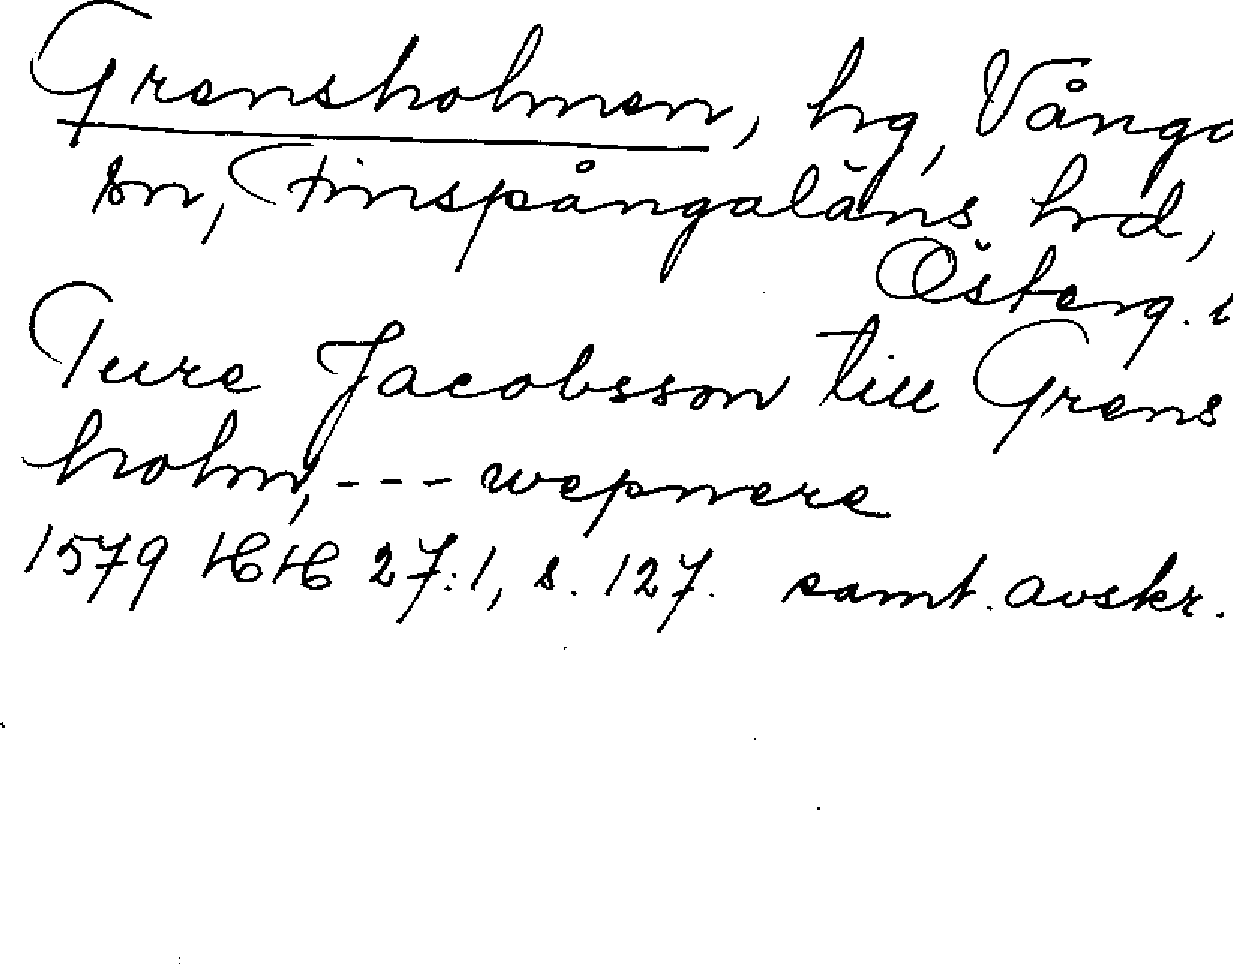 Grensholmen, hrg, Vånga
sn, Finspångaläns hrd,
Österg. l
Ture Jacobsson till Grens
holm, --- wepnere
1579 HH 27:1, s. 127. samt. avskr.